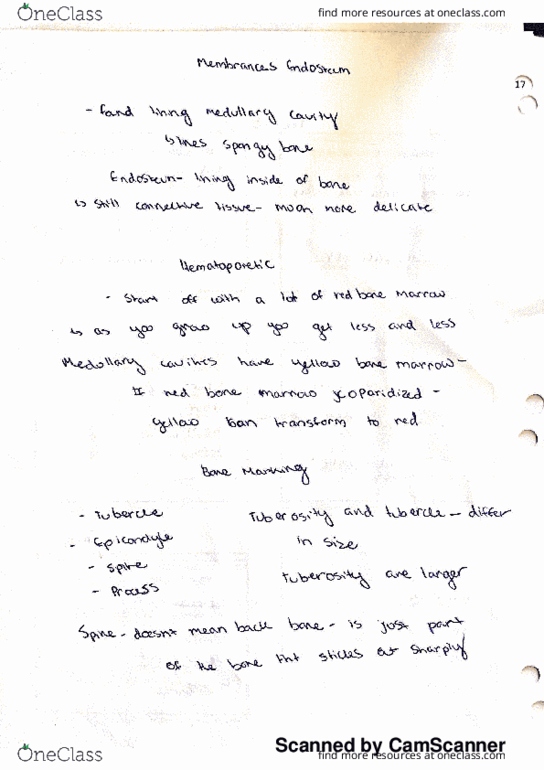 OneClass
find more resources at oneclass.com
Membrances Endosteum
17
- Found lining medullary cavity
↳ lines spongy bone
Endosteum - lining inside of bone
↳ still connective tissue - much more delicate
Hematoporetic
- Start off with a lot of red bone marrow
↳ as you grow up you get less and less
Medullary cavities have yellow bone marrow -
If red bone marrow jeoparidized -
yellow can transform to red
Bone Marking
- Tubercle
Tuberosity and tubercle - differ
- Epicondyle
in size
- Spine
- Process
Tuberosity are larger
Spine - doesn't mean back bone - is just part
of the bone tht sticks out sharply
Scanned by CamScanner
OneClass
find more resources at oneclass.com